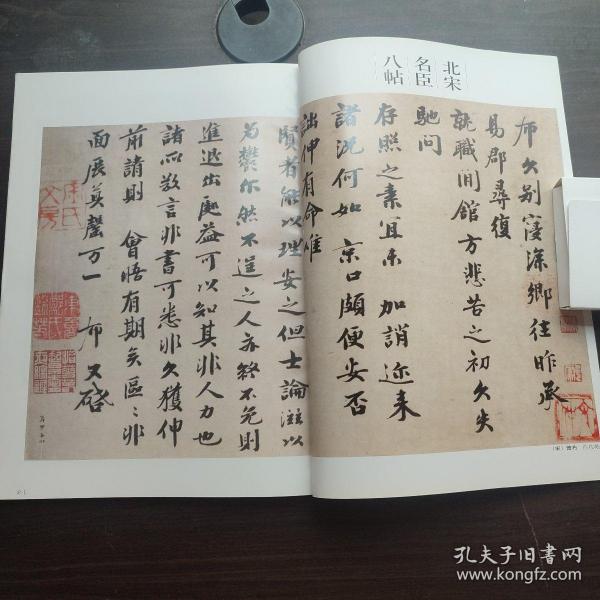 北宋
名臣
八帖
布久别寖深鄉往昨承
易郡尋復
就職閒館方悲苦之初久失
馳問
存照之素宜未加誚迩来
諸況何如京口頗便安否
詘伸有命唯
賢者能以理安之但士論滋以
為欝尔然不逞之人亦終不免則
進退出處益可以知其非人力也
諸所欲言非書可悉非久獲伸
前請則會悟有期矣區〻非
面展莫罄万一布又啓
孔夫子旧书网
www.kongfz.com